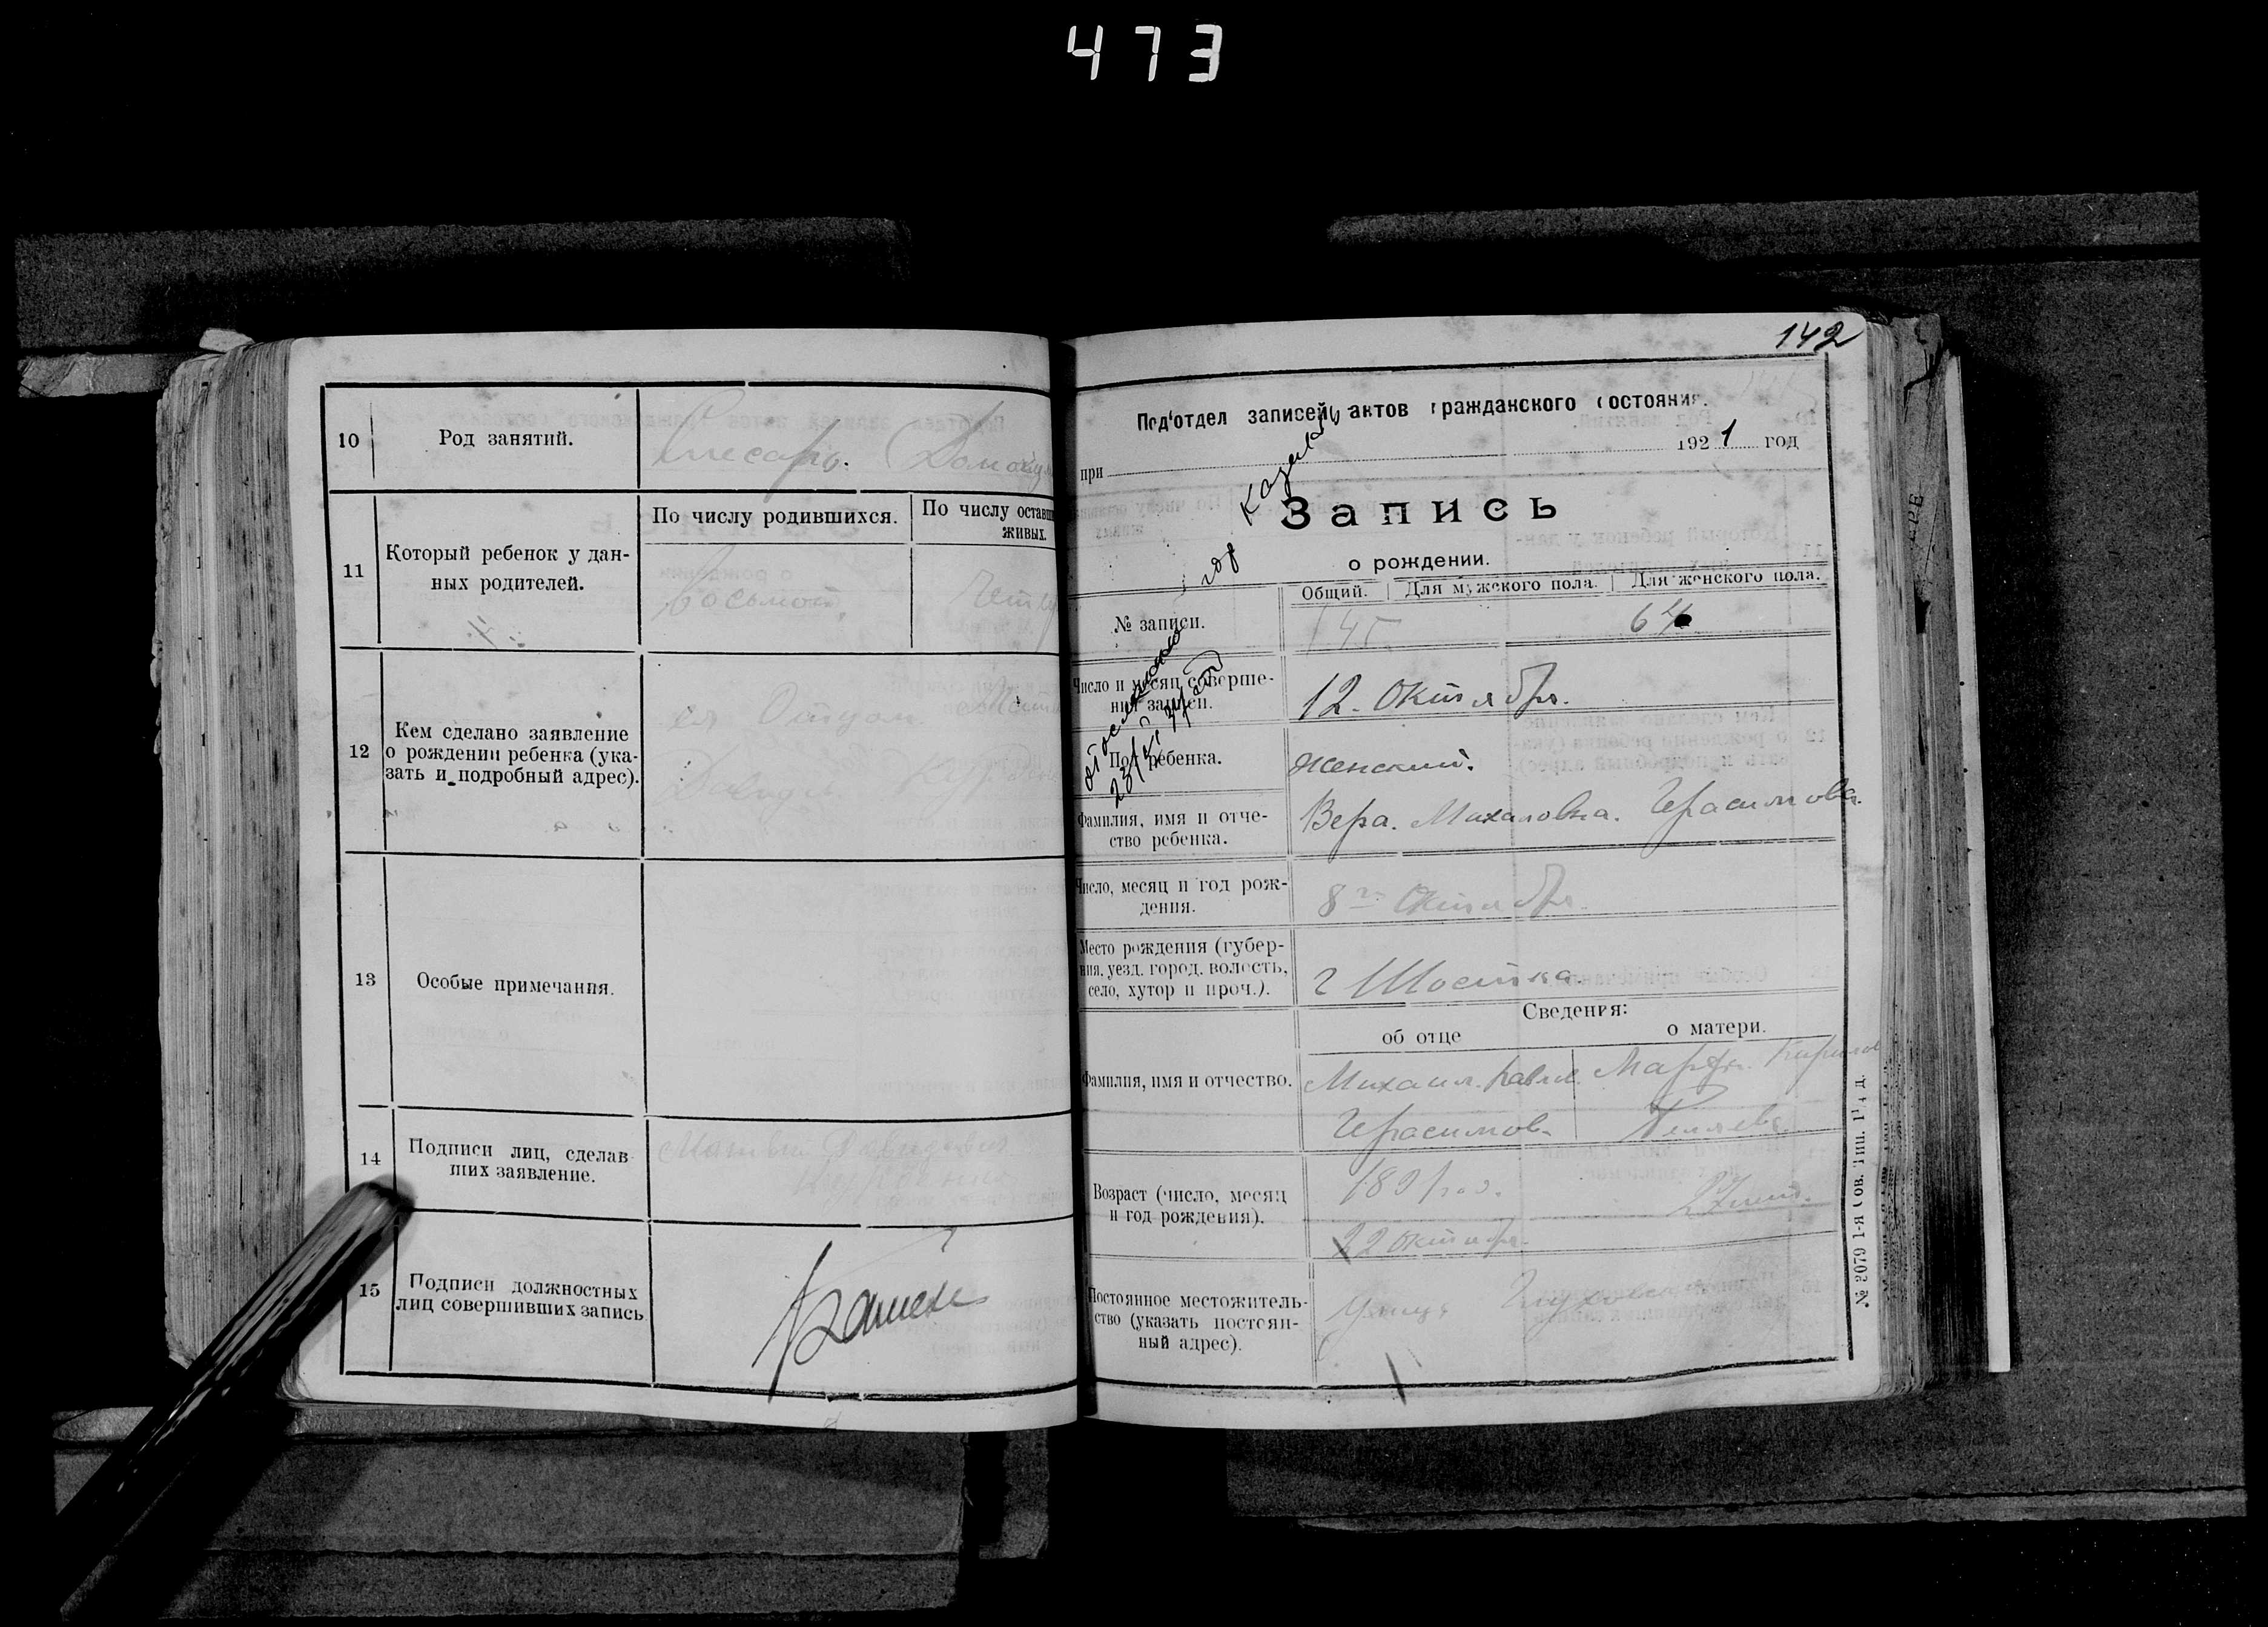 473
10
Род занятий.
Слесарь.
11
Который ребенок у дан-
ных родителей.
По числу родившихся.
По числу оставш
живых.
Восьмой.
12
Кем сделано заявление
о рождении ребенка (ука-
зать и подробный адрес).
Отцом.
13
Особые примечания.
14
Подписи лиц, сделав
ших заявление.
15
Подписи должностных
лиц совершивших запись
142
Под'отдел записей актов гражданского состояния.
при 1921 год
Запись
о рождении.
№ записи.
Общий. Для мужского пола. Для женского пола.
145
64
Число и месяц соверше-
ния записи.
12. Октября.
Пол ребенка.
Женский.
Фамилия, имя и отче-
ство ребенка.
Вера. Михаловна. Герасимова.
Число, месяц и год рож-
дения.
8го Октября.
Место рождения (губер-
ния, уезд, город, волость,
село, хутор и проч.).
г Шостка.
Сведения:
об отце
о матери.
Фамилия, имя и отчество.
Михаил. Павл.
Герасимов.
Марфа. Кирилов
Возраст (число, месяц
и год рождения).
1891 год.
22 Октября.
27 лет.
Постоянное местожитель-
ство (указать постоян-
ный адрес).
Улица
№ 2079 1-я Сов. Тип.